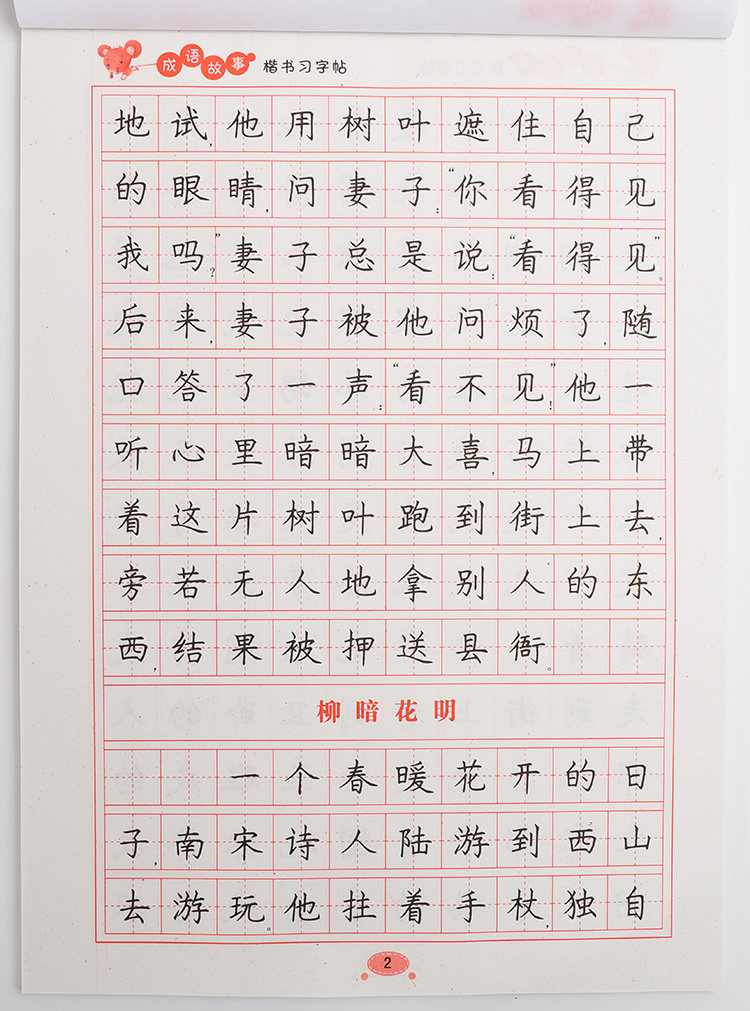 成语故事 楷书习字帖
地试,他用树叶遮住自己
的眼睛,问妻子:“你看得见
我吗?”妻子总是说:“看得见”。
后来,妻子被他问烦了,随
口答了一声:“看不见”!他一
听心里暗暗大喜,马上带
着这片树叶跑到街上去,
旁若无人地拿别人的东
西,结果被押送县衙。
柳暗花明
一个春暖花开的日
子,南宋诗人陆游到西山
去游玩。他拄着手杖,独自
2